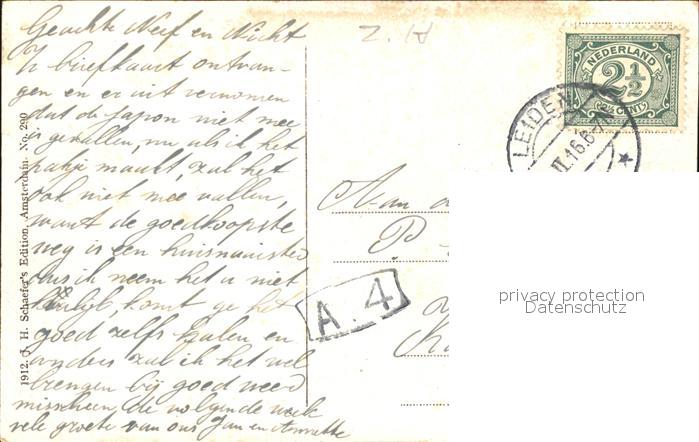 Geachte Neef en Nicht
Uw briefkaart ontvan-
gen en er uit vernomen
dat de japon niet mee
is gevallen, nu als ik het
pakje maakt, zal het
ook niet mee vallen,
want de goedkoopste
weg is een
dus ik neem het u niet
komt ge het
goed zelfs halen en
anders zal ik het wel
brengen bij goed weer
misscheen de volgende week
vele groete van ons Jan en Annette
1912. J. H. Schaefer's Edition, Amsterdam. No. 290
NEDERLAND
2½
2½ CENT
LEIDEN
II.16.6-7
Aan
P.
A. 4
privacy protection
Datenschutz